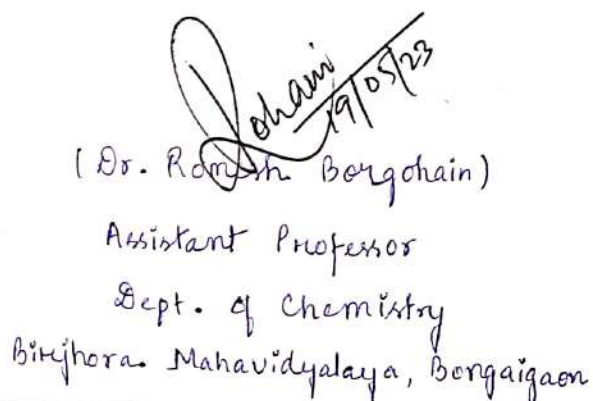 Rohain
19/05/23
(Dr. Romesh Borgohain)
Assistant Professor
Dept. of Chemistry
Birjhora Mahavidyalaya, Bongaigaon